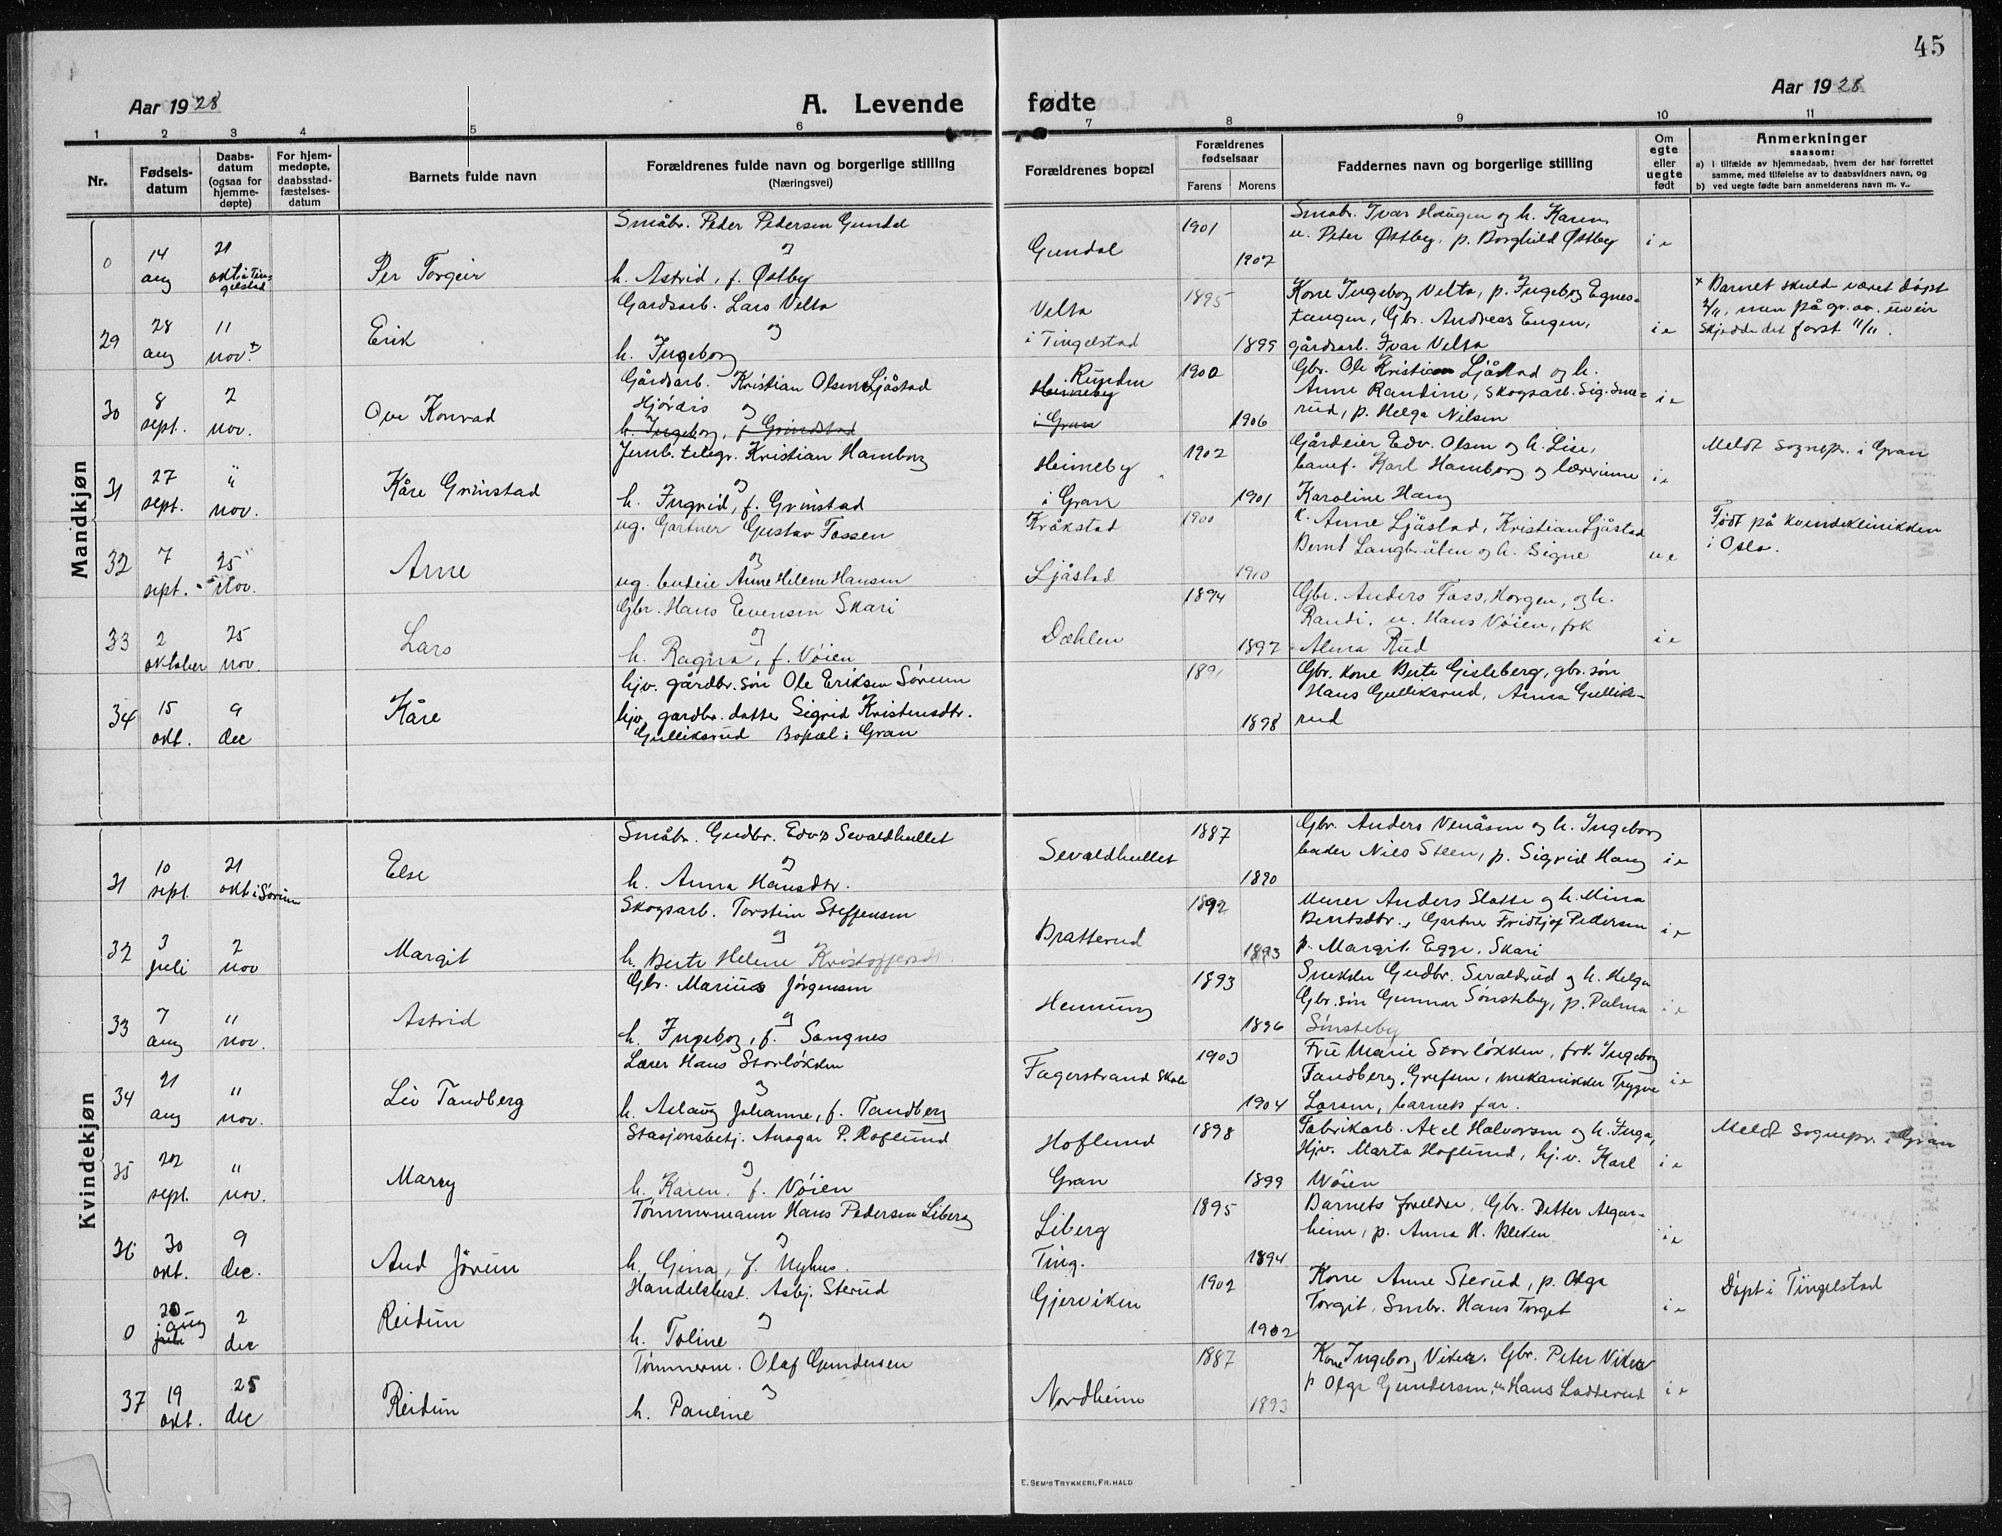 45
Aar 1928
A. Levende fødte
Aar 1928
1 2 3 4 5 6 7 8 9 10 11
Nr.
Fødsels-
datum
Daabs-
datum
(ogsaa for
hjemme-
døpte)
For hjem-
medøpte,
daabsstad-
fæstelses-
datum
Barnets fulde navn
Forældrenes fulde navn og borgerlige stilling
(Næringsvei)
Forældrenes bopæl
Forældrenes
fødselsaar
Farens Morens
Faddernes navn og borgerlige stilling
Om
egte
eller
uegte
født
Anmerkninger
saasom:
a) i tilfælde av hjemmedaab, hvem der har forrettet
samme, med tilføielse av to daabsvidners navn, og
b) ved uegte fødte barn anmelderens navn m. v..
Mandkjøn
0 14 aug 21 okt i Tin-
gelstad
Per Torgeir
Småbr. Peder Pedersen Gundal
og
h. Astrid, f. Østby
Gundal
1901
1907
Småbr. Ivar Haugen og h. Karen,
u. Peter Østby, p. Borghild Østby
i e
29 28 aug 11 nov. +
Erik
Gardsarb. Lars Velta
og
h. Ingeborg
Velta
i Tingelstad
1895
1899
Kone Ingeborg Velta, p. Ingeborg Egnes-
tangen, Gbr. Andreas Engen,
gårdsarb. Ivar Velta
i e
+ Barnet skuld været døpt
4/11, men på gr. av. uveir
skjedde det først 11/11.
30 8 sept. 2 nov.
Ove Konrad
Gårdsarb. Kristian Olsen Ljåstad
Hjørdis og
h. Ingeborg, f. Grindstad
Runden
Heineby
i Gran
1900
1906
Gbr. Ole Kristian Ljåstad og h.
Anne Randine, skogsarb. Sig. Sme-
rud, p. Helga Nilsen
i e
31 27 sept. " nov.
Kåre Grinstad
Jernb. telegr. Kristian Hamborg
og
h. Ingrid, f. Grinstad
Heineby
i Gran
1902
1901
Gårdeier Edv. Olsen og h. Lise,
banef. Karl Hamborg og lærerinne
Karoline Haug
i e
Meldt sognepr. i Gran
32 7 sept. 25 Nov.
Arne
ug. Gartner Gustav Fossen
og
ug. budeie Anne Helene Hansen
Kråkstad
Ljåstad
1900
1910
k. Anne Ljåstad, Kristian Ljåstad
Bernt Langbråten og h. Signe
u e
Født på kvindeklinikken
i Oslo.
33 2 oktober 25 nov.
Lars
Gbr. Hans Evensen Skari
og
h. Ragna, f. Vøien
Dæhlen
1894
1897
Gbr. Anders Foss, Horgen, og h.
Randi, u. Hans Vøien, frk
Alma Rud
i e
34 15 okt. 9 dec
Kåre
hjv. gårdbr. søn Ole Eriksen Sørum
hjv. gardbr. datter Sigrid Kristensdtr.
Gulliksrud Bopæl i Gran
1891
1898
Gbr. kone Berte Gisleberg, gbr. søn
Hans Gulliksrud, Anna Gulliks-
rud
Kvindekjøn
31 10 sept. 21 okt i Sørum
Else
Småbr. Gudbr. Edv. Sevaldhullet
og
h. Anna Hansdtr.
Sevaldhullet
1887
1890
Gbr. Anders Venåsen og h. Ingeborg
bader Nils Steen, p. Sigrid Haug
i e
32 3 juli 2 nov
Margit
Skogsarb. Torstein Steffensen
og
h. Berte Helene Kristoffersdtr.
Bratterud
1892
1893
Murer Anders Slotte og h. Mina
Berntsdtr., Gartner Fridtjof Pedersen
p. Margit Egge, Skari
i e
33 7 aug " nov.
Astrid
Gbr. Marius Jørgensen
og
h. Ingeborg, f. Sangnes
Hennung
1893
1896
Snekker Gudbr. Sevaldrud og h. Helga
Gbr. søn Gunnar Sønsteby, p. Palma
Sønsteby
i e
34 21 aug " nov.
Liv Tandberg
Lærer Hans Storløkken
og
h. Aslaug Johanne, f. Tandberg
Fagerstrand Skole
1903
1904
Fru Marie Storløkken, frk. Ingeborg
Tandberg, Grefsen, mekanikker Trygve
Larsen, barnets far.
i e
35 22 sept. " nov.
Marry
Stasjonsbetj. Ansgar P. Hoflund
og
h. Karen, f. Vøien
Hoflund
Gran
1898
1899
Fabrikarb. Axel Halvorsen og h. Inga,
Hjv. Marta Hoflund, hj.v. Karl
Wøien
i e
Meldt sognepr. i Gran
36 30 okt. 9 dec.
Aud Jørun
Tømmermann Hans Pedersen Liberg
og
h. Gina, f. Nyhus.
Liberg
Ting.
1895
1894
Barnets foreldre, Gbr. Petter Algar-
heim, p. Anna H. Bleken
i e
0 20 aug juli 2 dec
Reidun
Handelsbest. Asbj. Sterud
og
h. Toline
Gjerviken
1902
1902
Kone Anne Sterud, p. Olga
Torgit, Smbr. Hans Torget
i e
Døpt i Tingelstad
37 19 okt. 25 dec
Reidun
Tømmerm. Olaf Gundersen
og
h. Pauline
Nordheim
1887
1893
Kone Ingeborg Viker. Gbr. Peter Viker
p Olga Gundersen, u. Hans Ladderud
i e
E. SEM'S TRYKKERI, FR.HALD